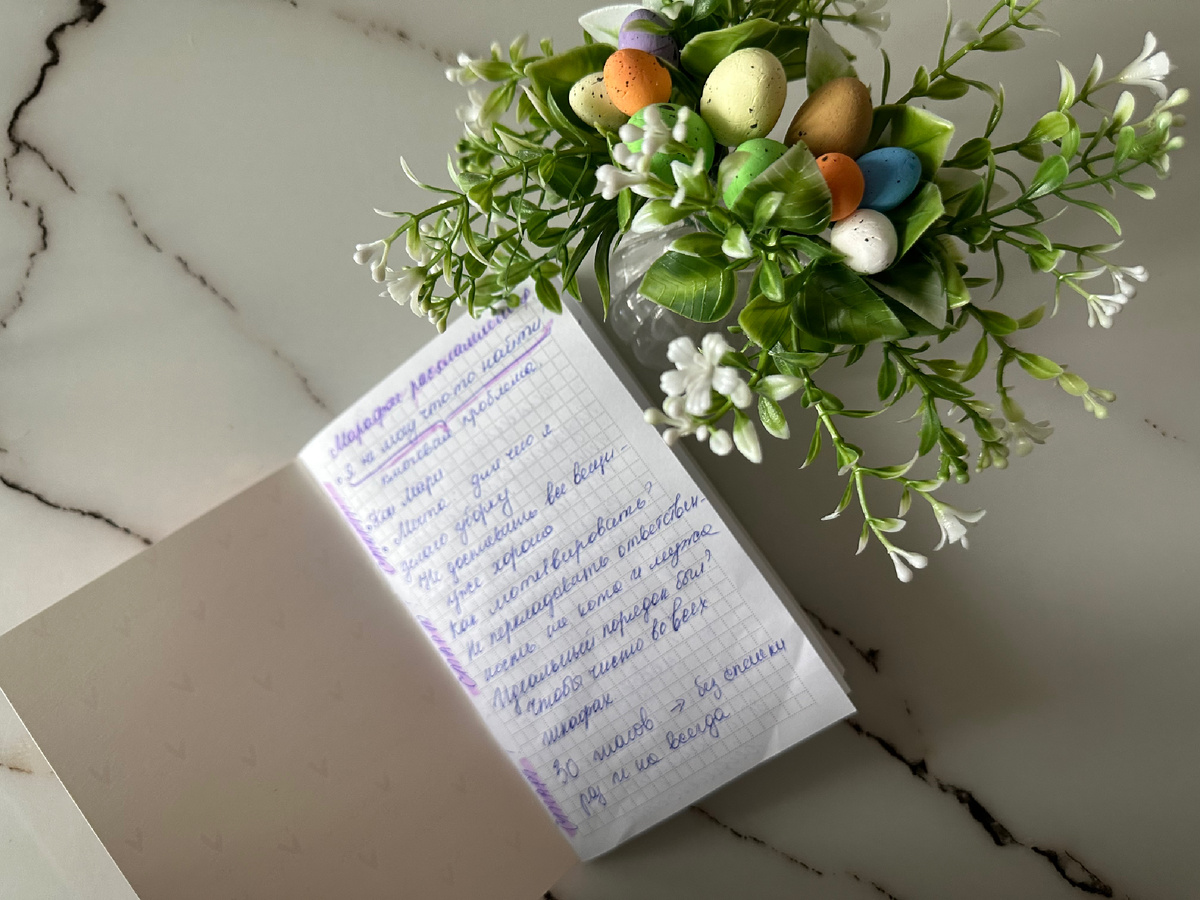 Марафон расхламления
"Я не могу что-то найти"
ключевая проблема
Кон Мари
Место для чего я
делаю уборку
Не доставать все вещи..
уже хорошо
Как мотивировать?
Не перекладывать ответствен-
ность на кота и мужа
Идеальный порядок был?
чтобы чисто во всех
шкафах
30 часов → без спешки
раз и на всегда